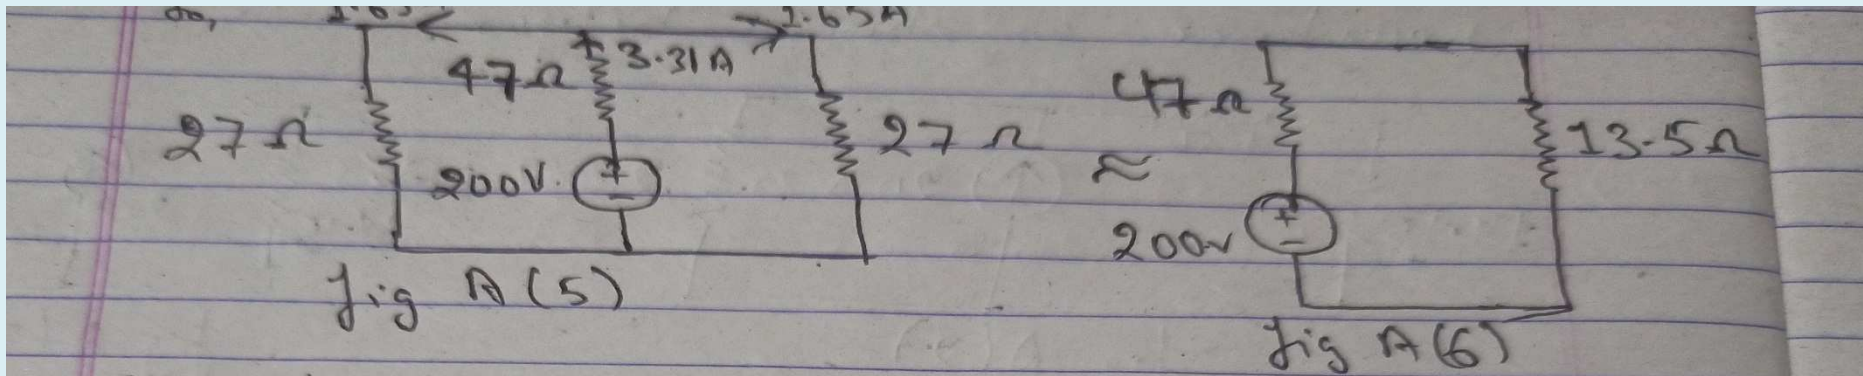 so,
1.65A
47Ω 3.31A
27Ω
200V
+
-
27Ω
fig A(5)
≈
47Ω
13.5Ω
200v
+
-
fig A(6)